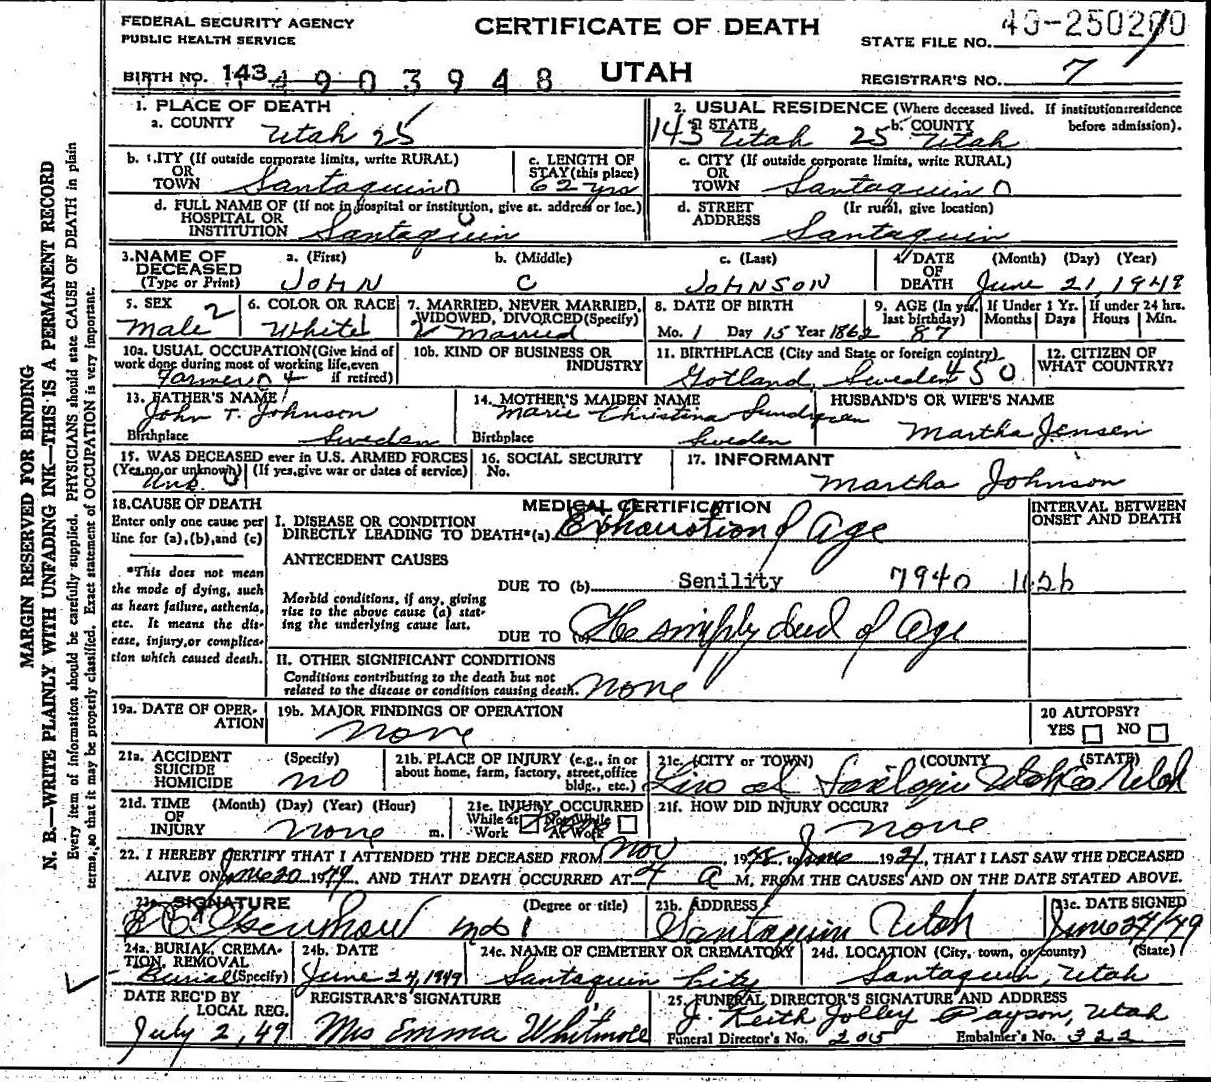 FEDERAL SECURITY AGENCY
PUBLIC HEALTH SERVICE
CERTIFICATE OF DEATH
STATE FILE NO.
BIRTH NO. 143 4903948
UTAH
REGISTRAR'S NO. 7
1. PLACE OF DEATH
a. COUNTY Utah 25
2. USUAL RESIDENCE (Where deceased lived. If institution:residence before admission).
143 a. STATE Utah 25 b. COUNTY Utah
b. CITY (If outside corporate limits, write RURAL)
OR TOWN Santaquin 0
c. LENGTH OF STAY (this place) 62 yrs
c. CITY (If outside corporate limits, write RURAL)
OR TOWN Santaquin 0
d. FULL NAME OF (If not in hospital or institution, give st. address or loc.)
HOSPITAL OR INSTITUTION Santaquin
d. STREET ADDRESS (If rural, give location)
Santaquin
3. NAME OF DECEASED (Type or Print)
a. (First) JOHN
b. (Middle) C
c. (Last) JOHNSON
4. DATE OF DEATH (Month) (Day) (Year)
June 21, 1949
5. SEX 2
Male
6. COLOR OR RACE
White
7. MARRIED, NEVER MARRIED, WIDOWED, DIVORCED (Specify)
Married
8. DATE OF BIRTH
Mo. 1 Day 15 Year 1862
9. AGE (In yrs. last birthday) 87
If Under 1 Yr. Months Days
If under 24 hrs. Hours Min.
10a. USUAL OCCUPATION (Give kind of work done during most of working life, even if retired)
Farmer
10b. KIND OF BUSINESS OR INDUSTRY
11. BIRTHPLACE (City and State or foreign country)
Gotland, Sweden 450
12. CITIZEN OF WHAT COUNTRY?
13. FATHER'S NAME
John T. Johnson
Birthplace Sweden
14. MOTHER'S MAIDEN NAME
Marie Christina
Birthplace Sweden
HUSBAND'S OR WIFE'S NAME
Martha Jensen
15. WAS DECEASED ever in U.S. ARMED FORCES
(Yes, no, or unknown) (If yes, give war or dates of service)
Unk. 0
16. SOCIAL SECURITY No.
17. INFORMANT
Martha Johnson
18. CAUSE OF DEATH
Enter only one cause per line for (a), (b), and (c)
*This does not mean the mode of dying, such as heart failure, asthenia, etc. It means the disease, injury, or complication which caused death.
MEDICAL CERTIFICATION
INTERVAL BETWEEN ONSET AND DEATH
I. DISEASE OR CONDITION DIRECTLY LEADING TO DEATH*(a) Exhaustion of Age
ANTECEDENT CAUSES
DUE TO (b) Senility 7940
Morbid conditions, if any, giving rise to the above cause (a) stating the underlying cause last.
DUE TO (c) He simply died of Age
II. OTHER SIGNIFICANT CONDITIONS
Conditions contributing to the death but not related to the disease or condition causing death. None
19a. DATE OF OPERATION
19b. MAJOR FINDINGS OF OPERATION
None
20 AUTOPSY?
YES NO
21a. ACCIDENT SUICIDE HOMICIDE (Specify)
no
21b. PLACE OF INJURY (e.g., in or about home, farm, factory, street, office bldg., etc.)
21c. (CITY or TOWN) (COUNTY (STATE)
Utah Co Utah
21d. TIME OF INJURY (Month) (Day) (Year) (Hour)
None m.
21e. INJURY OCCURRED
While at Work Not While At Work
21f. HOW DID INJURY OCCUR?
none
22. I HEREBY CERTIFY THAT I ATTENDED THE DECEASED FROM Nov, 1948, to June 1921, THAT I LAST SAW THE DECEASED
ALIVE ON June 20 1949 AND THAT DEATH OCCURRED AT 4 a M, FROM THE CAUSES AND ON THE DATE STATED ABOVE.
23a. SIGNATURE (Degree or title)
md
23b. ADDRESS
Santaquin Utah
23c DATE SIGNED
June 24/49
24a. BURIAL, CREMATION, REMOVAL (Specify)
Burial
24b. DATE
June 24, 1949
24c. NAME OF CEMETERY OR CREMATORY
Santaquin City
24d. LOCATION (City, town, or county) (State)
Santaquin, Utah
DATE REC'D BY LOCAL REG.
July 2, 49
REGISTRAR'S SIGNATURE
Mrs Emma Whitmore
25. FUNERAL DIRECTOR'S SIGNATURE AND ADDRESS
J. Keith Jolley Payson, Utah
Funeral Director's No. 205 Embalmer's No. 322
MARGIN RESERVED FOR BINDING
N. B.—WRITE PLAINLY WITH UNFADING INK—THIS IS A PERMANENT RECORD
Every item of information should be carefully supplied. PHYSICIANS should state CAUSE OF DEATH in plain
terms, so that it may be properly classified. Exact statement of OCCUPATION is very important.